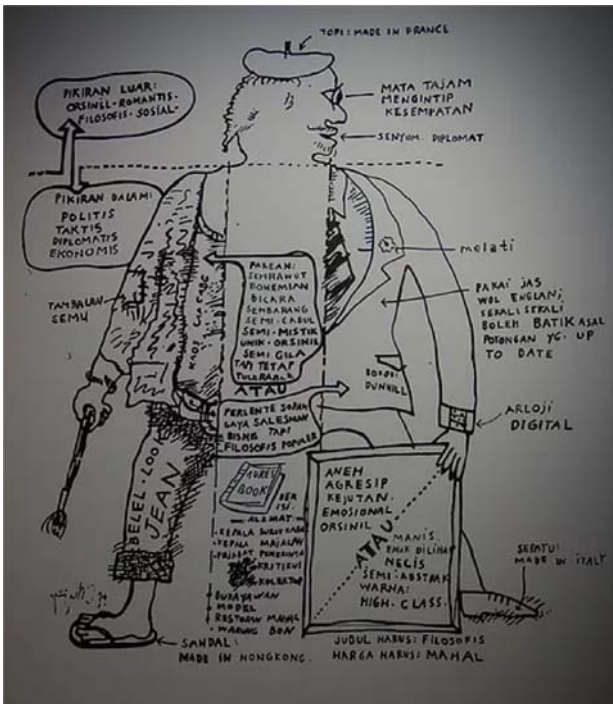 TOPI : MADE IN FRANCE
PIKIRAN LUAR:
ORSINIL-ROMANTIS-
FILOSOFIS-SOSIAL-
MATA TAJAM
MENGINTIP
KESEMPATAN
SENYUM DIPLOMAT
PIKIRAN DALAM:
POLITIS
TAKTIS
DIPLOMATIS
EKONOMIS
melati
TAMBALAN
SEMU
KAOS
PAKEAN:
SEMRAWUT
BOHEMIAN
BICARA
SEMBARANG
SEMI-CABUL
SEMI-MISTIK
UNIK-ORSINIL
SEMI GILA
TAPI TETAP
ATAU
PAKAI JAS
WOL ENGLAN;
SEKALI SEKALI
BOLEH BATIK ASAL
POTONGAN YG. UP
TO DATE
DUNHILL
PERLENTE SOPAN
GAYA SALESMAN
BISNIS TAPI
FILOSOFIS POPULER
ARLOJI
DIGITAL
BELEL-LOOK
JEAN
BOOK
BER
ISI:
ALAMAT
KEPALA MAJALAH
KRITIKUS
KOLEKTOR
BUDAYAWAN
MODEL
RESTORAN MAHAL
WARUNG BON
ANEH
AGRESIP
KEJUTAN.
EMOSIONAL
ORSINIL
ATAU
MANIS.
ENAK DILIHAT
NECIS
SEMI-ABSTRAK
WARNA:
HIGH-CLASS.
SEPATU:
MADE IN ITALY
SANDAL:
MADE IN HONGKONG.
JUDUL HARUS: FILOSOFIS
HARGA HARUS: MAHAL